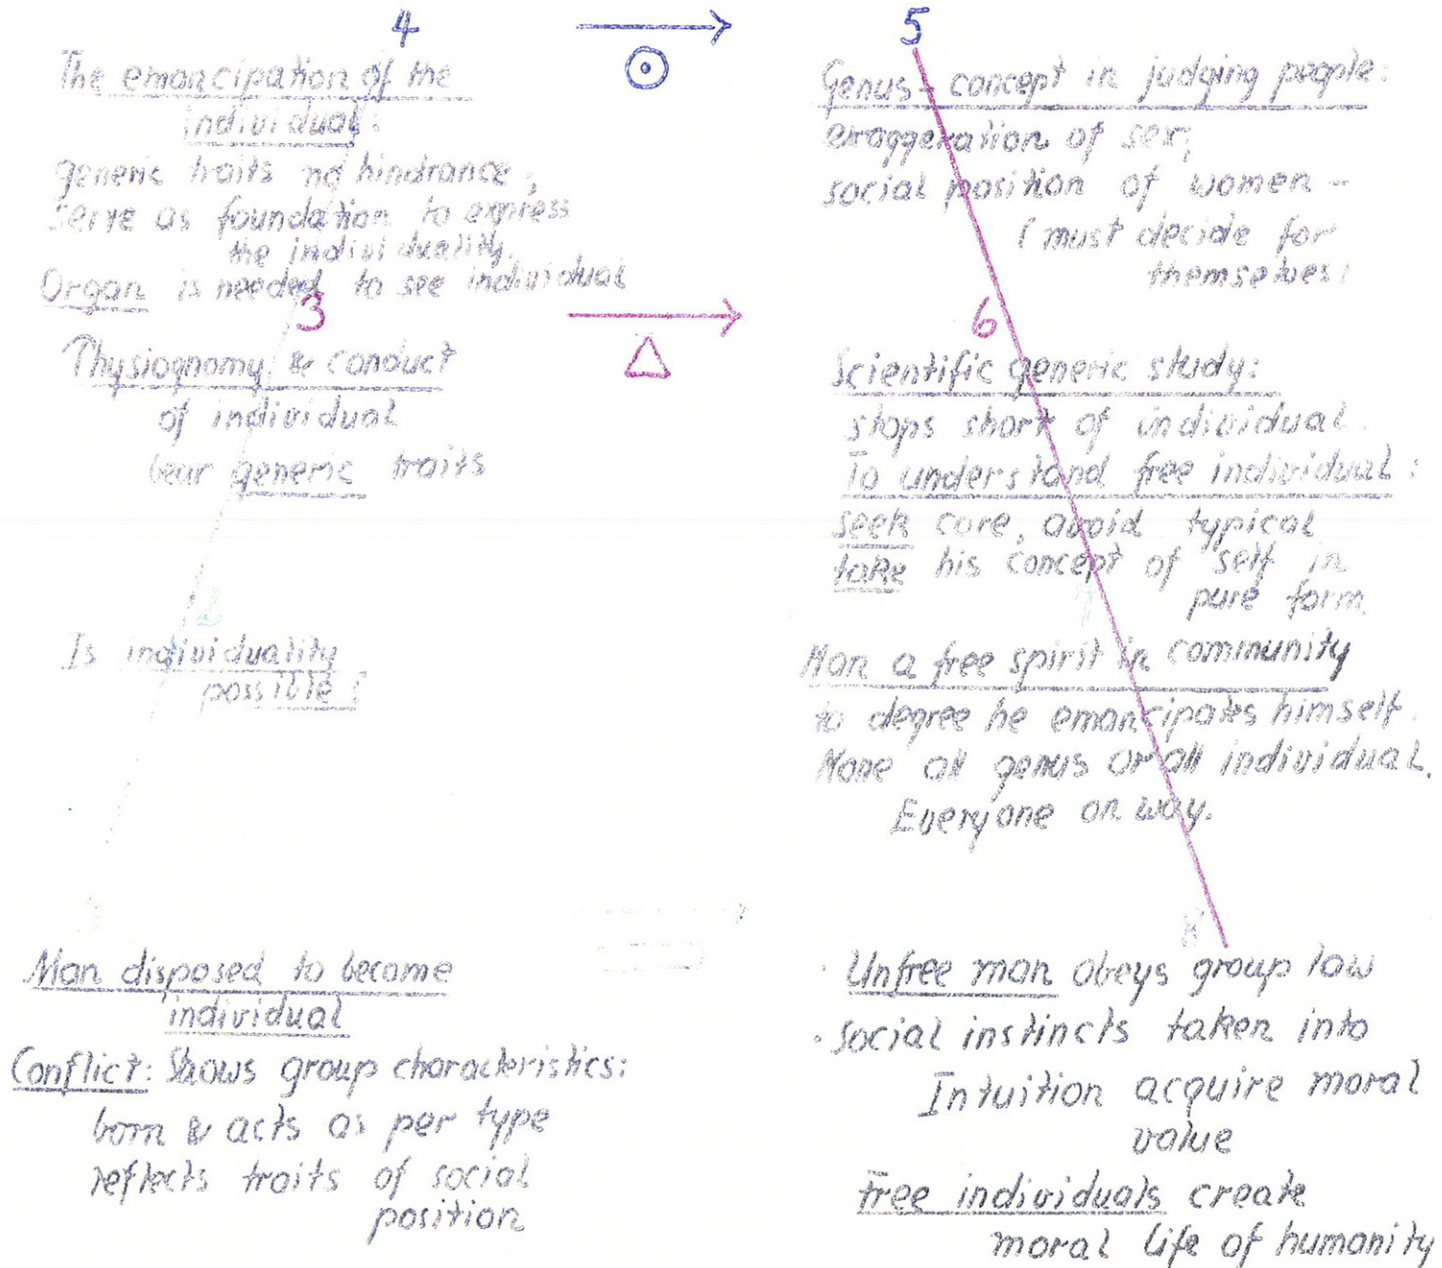 4
The emancipation of the
individual:
generic traits no hindrance,
serve as foundation to express
the individuality.
Organ is needed to see individual
3
Physiognomy & conduct
of individual
bear generic traits
2
Is individuality
possible?
Man disposed to become
individual
Conflict: Shows group characteristics:
born & acts as per type
reflects traits of social
position
5
Genus - concept in judging people:
exaggeration of sex;
social position of women -
(must decide for
themselves)
6
Scientific generic study:
stops short of individual.
To understand free individual:
seek core, avoid typical
take his concept of self in
pure form
7
Man a free spirit in community
to degree he emancipates himself.
None all genus or all individual.
Everyone on way.
8
· Unfree man obeys group law
· Social instincts taken into
Intuition acquire moral
value
Free individuals create
moral life of humanity